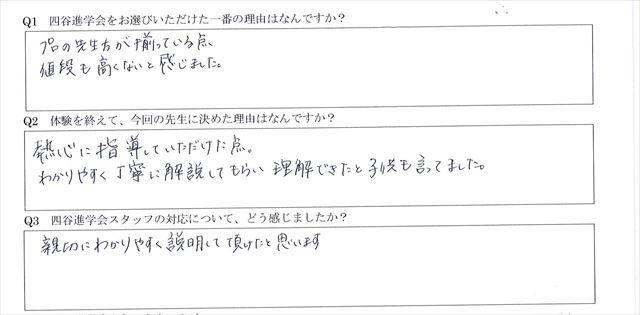 Q1 四谷進学会をお選びいただけた一番の理由はなんですか？
プロの先生方が揃っている点、
値段も高くないと感じました。
Q2 体験を終えて、今回の先生に決めた理由はなんですか？
熱心に指導していただけた点。
わかりやすく丁寧に解説してもらい理解できたと子供も言ってました。
Q3 四谷進学会スタッフの対応について、どう感じましたか？
親切にわかりやすく説明して頂けたと思います